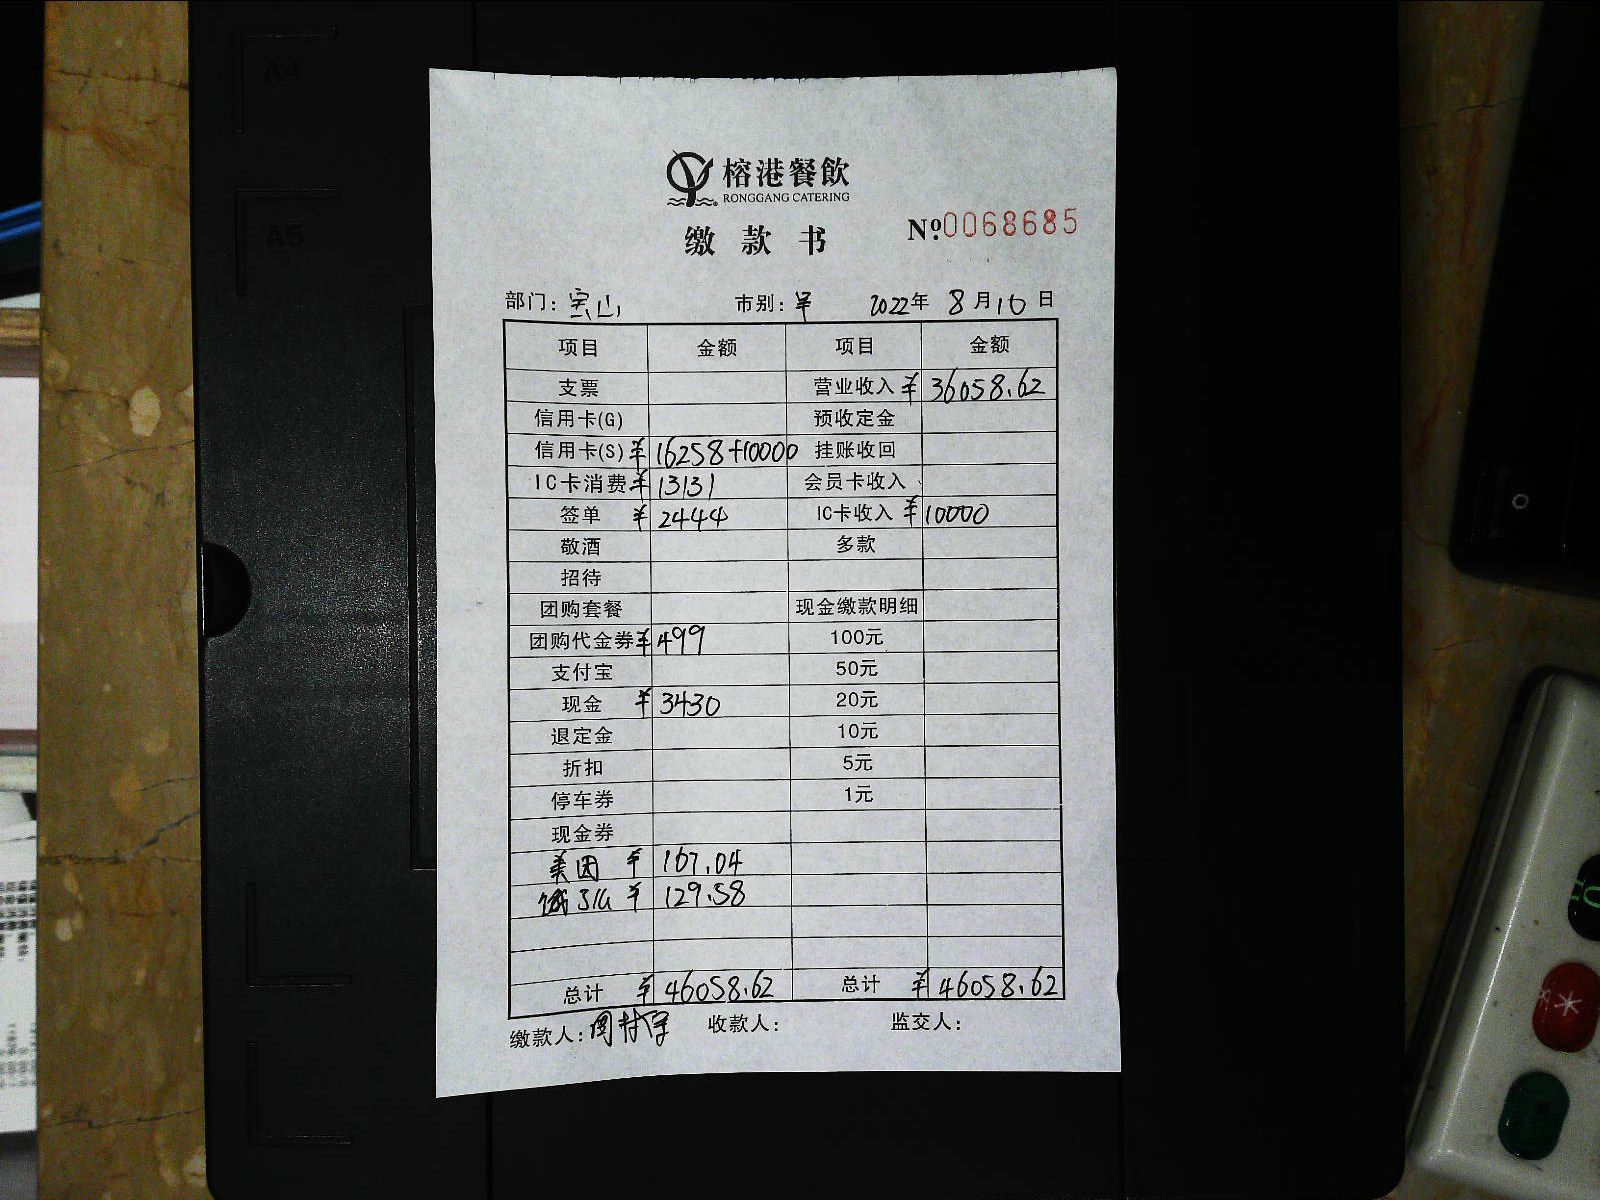 A4
A5
榕港餐飲
RONGGANG CATERING
缴款书
Nº.0068685
部门: 宝山 市别: 早 2022年 8月10日
项目 金额 项目 金额
支票 营业收入 ¥ 36058.62
信用卡(G) 预收定金
信用卡(S) ¥ 16258+10000 挂账收回
IC卡消费 ¥ 13131 会员卡收入
签单 ¥ 2444 IC卡收入 ¥ 10000
敬酒 多款
招待
团购套餐 现金缴款明细
团购代金券 ¥ 499 100元
支付宝 50元
现金 ¥ 3430 20元
退定金 10元
折扣 5元
停车券 1元
现金券
美团 ¥ 167.04
饿了么 ¥ 129.58
总计 ¥ 46058.62 总计 ¥ 46058.62
缴款人: 收款人: 监交人: